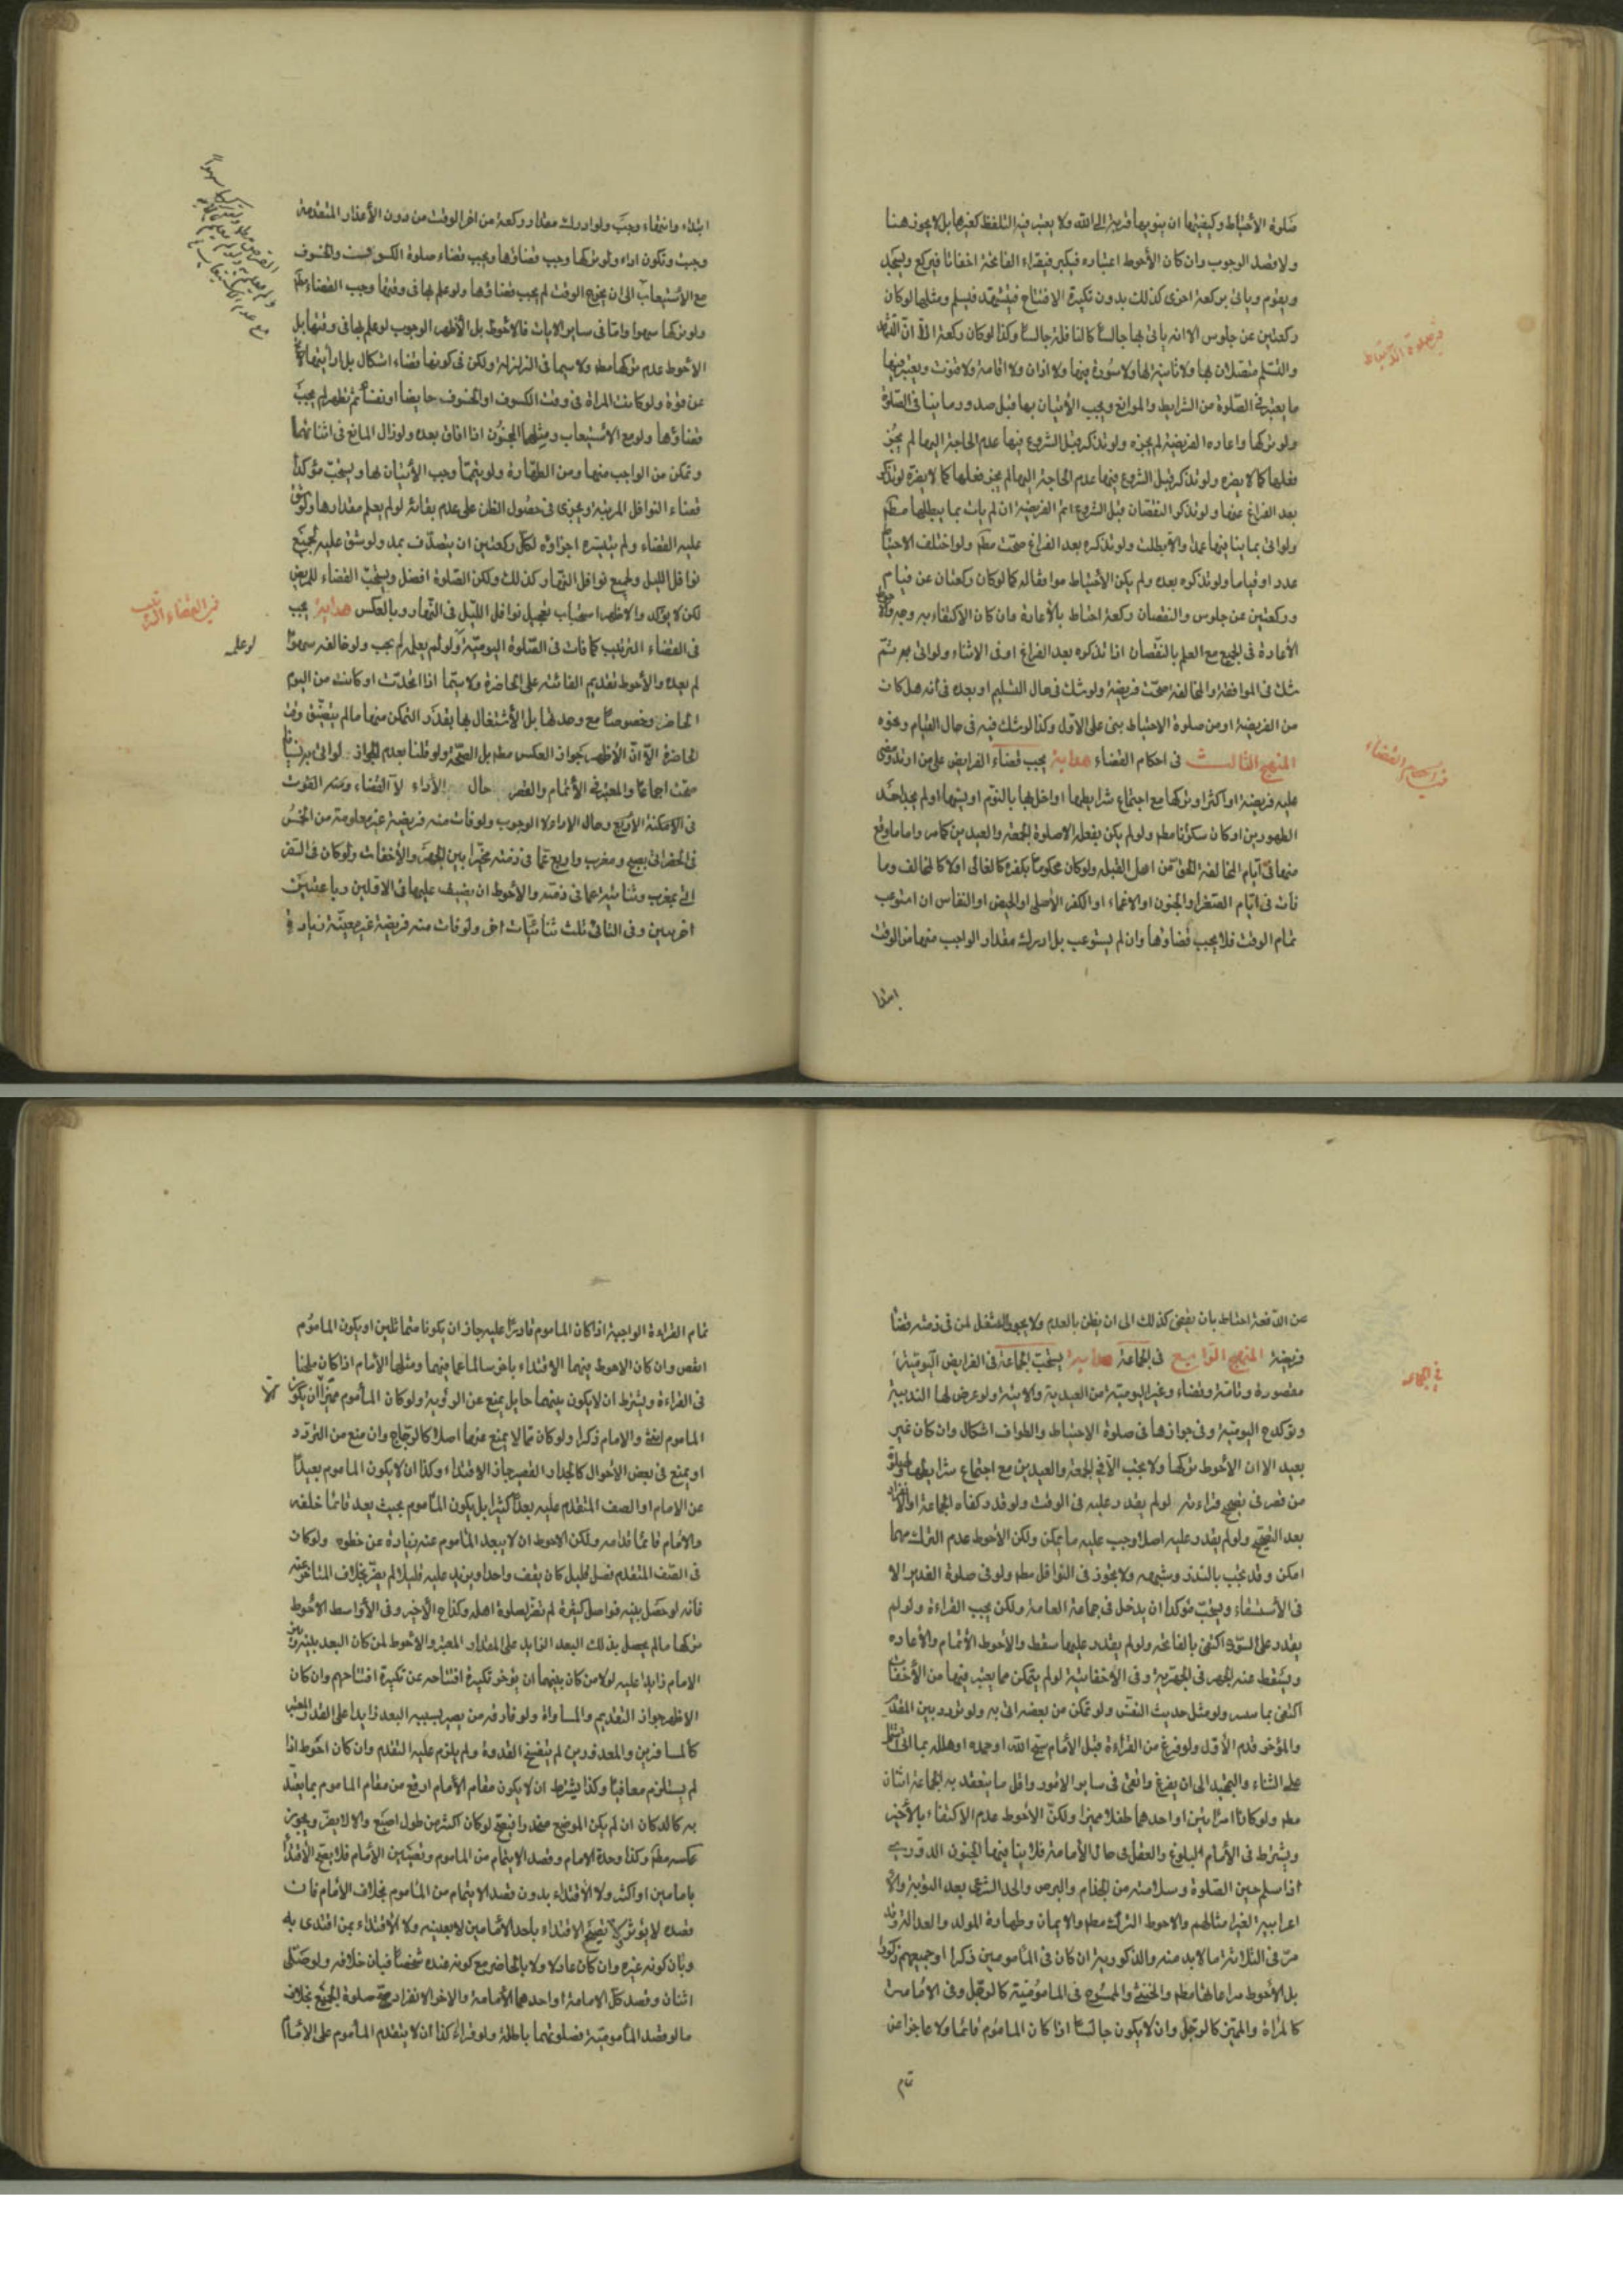 صلوة الأحتياط وكيفيتها ان ينويها قربة الى الله ولا يعتبر فيه التلفظ كغيرها بل لا يجوز هنا
ولا قصد الوجوب وان كان الأحوط اعتباره فيكبر فيقراء الفاتحة اخفاتا فيركع ويسجد
ويقوم وياتى بركعة اخرى كذلك بدون تكبيرة الافتتاح فيتشهد فيسلم ومثلها لو كان
ركعتين عن جلوس الا انه ياتى بها جالسا كالنافلة جالسا وكذا لو كان ركعة الا ان التشهد
والتسليم متصلان بها ولا ثانية لها ولا سورة فيها ولا اذان ولا اقامة ولا قنوت ويعتبر فيها
ما يعتبر فى الصلوة من الشرايط والموانع ويجب الأتيان بها قبل صدور ما ينافى الصلوة
ولو تركها واعاده الفريضة لم يجزه ولو تذكر قبل الشروع فيها عدم الحاجة اليها لم يجز
فعلها كما لا يضره ولو تذكر قبل الشروع فيها عدم الحاجة اليها لم يجز فعلها كما لا يضره لو تذكر
بعد الفراغ عنها ولو تذكر النقصان قبل الشروع اتم الفريضة ان لم يات بما يبطلها مطلقا
ولو اتى بما ينافيها عمدا والا بطلت ولو تذكره بعد الفراغ صحت مطلقا ولو اختلف الاحتياط
عددا او قياما ولو تذكره بعده ولم يكن الأحتياط موافقا له كما لو كان ركعتان عن قيام
وركعتين عن جلوس والنقصان ركعة احتاط بالأعادة وان كان الاكتفاء به وجه والاحوط
الأعادة فى الجميع مع العلم بالنقصان اذا تذكره بعد الفراغ او فى الاثناء ولو اتى به ثم
شك فى الموافقة والمخالفة صحت فريضة ولو شك فى حال التسليم او بعده فى أنه هل كان
من الفريضة او من صلوة الاحتياط بنى على الاول وكذا لو شك فيه فى حال القيام ونحوه
المنهج الثالث فى احكام القضاء هداية يجب قضاء الفرايض على من ارتد ومضى
عليه فريضة او اكثر او تركها مع اجتماع شرايطها او اخل بها بالنوم او نسيها او لم يجد احد
الطهورين او كان سكرانا مطلقا ولو لم يكن بفعله الا صلوة الجمعة والعيدين كما مر واما ما وقع
منها فى ايام المخالفة الحق من اهل القبلة ولو كان محكوما بكفره كالغالى او لا كالمخالف وما
فات فى ايام الصغر او الجنون او الاغماء او الكفر الأصلى او الحيض او النفاس ان استوعب
تمام الوقت فلا يجب قضاؤها وان لم يستوعب بل ادرك مقدار الواجب منها من الوقت
ابتدا
فى صلوة الاحتياط
فى احكام القضاء
ابتداء وانتهاء وجب ولو ادرك مقدار ركعة من اخر الوقت من دون الأعذار المتقدمة
وجبت وتكون اداء ولو تركها وجب قضاؤها ويجب قضاء صلوة الكسوف والخسوف
مع الأستيعاب الى ان يخرج الوقت لم يجب قضاؤها ولو علم بها فى وقتها وجب القضاء مطلقا
ولو تركها سهوا واما فى ساير الايات فالاحوط بل الأظهر الوجوب لو علم بها فى وقتها بل
الأحوط عدم تركها مطلقا ولا سيما فى الزلزلة ولكن فى كونها قضاء اشكال بل ارأيتها
عن قوة ولو كانت المراة فى وقت الكسوف او الخسوف حايضا او نفسا ثم تطهر لم يجب
قضاؤها ولو مع الاستيعاب ومثلها المجنون اذا افاق بعده ولو زال المانع فى اثنائها
وتمكن من الواجب منها ومن الطهارة ولو بتيمما وجب الأتيان بها ويستحب مؤكدا
قضاء النوافل المرتبة ويجزى فى حصول الظن على عدم بقائه لو لم يعلم مقدارها ولو شق
عليه القضاء ولم يتيسره اجزاؤه لكل ركعتين ان يتصدق بمد ولو شق عليه لجميع
نوافل الليل ولجميع نوافل النهار كذلك ولكن الصلوة افضل ويستحب القضاء للمريض
لكن لا يؤكد والاظهر استحباب تعجيل نوافل الليل فى النهار وبالعكس هداية يجب
فى القضاء الترتيب كما فات فى الصلوة اليومية ولو لم يعلم لم يجب ولو خالفه سهوا
لم يعده والأحوط تقديم الفائتة على الحاضرة ولا سيما اذا اتحدت او كانت من اليوم
الحاضر وخصوصا مع وحدتها بل الأشتغال بها بقدر التمكن منها ما لم يتضيق وقت
الحاضرة الا ان الأظهر جواز العكس مطلقا بل الصحة ولو قلنا بعدم الجواز لو اتى به نسيانا
صحت اجماعا والمعتبر فى الأتمام والقصر حال الأداء لا القضاء وعند الفوت
فى الأمكنة الأربع وحال الاداء لا الوجوب ولو فات منه فريضة غير معلومة من الخمس
فى الحضر اتى بصبح ومغرب واربع عما فى ذمته مخيرا بين الجهر والأخفات ولو كان فى السفر
اتى بمغرب وثنائية عما فى ذمته والأحوط ان يضيف عليها فى الاولين رباعيتين
اخريين وفى الثانى ثلث ثنائيات اخر ولو فات منه فريضة غير معينة زيادة
فى القضاء الترتيب
لو علم
عن الدفعة احتاط بان يقضى كذلك الى ان يظن بالعدم ولا يجوز التنفل لمن فى ذمته قضاء
فريضة المنهج الرابع فى الجماعة هداية يستحب الجماعة فى الفرايض اليومية
مقصورة وتامة وقضاء وغير اليومية من العيدية والايتة ولو عرض لها الندبية
وتوكدح اليومية وفى جوازها فى صلوة الاحتياط والطواف اشكال وان كان غير
بعيد الا ان الأحوط تركها ولا يجب الا فى الجمعة والعيدين مع اجتماع شرايطها
من قصر فى تصحيح قراءته لو لم يقدر عليه فى الوقت ولو قدر كفاه الجماعة او الانفراد
بعد التصحيح ولو لم يقدر عليه اصلا وجب عليه ما يمكن ولكن الأحوط عدم الترك مهما
امكن وقد يجب بالنذر وشبهه ولا يجوز فى النوافل مطلقا ولو فى صلوة الغدير الا
فى الأستسقاء ويستحب مؤكدا ان يدخل فى جماعة العامة ولكن يجب القراءة ولو لم
يقدر على السورة اكتفى بالفاتحة ولو لم يقدر عليها سقط والأحوط الأتمام والأعادة
ويسقط عنه الجهر فى الجهرية وفى الأخفاتية لو لم يتمكن مما يعتبر فيها من الأخفات
اكتفى بما يتيسر ولو مثل حديث النفس ولو تمكن من بعضه اتى به ولو تردد بين المقدم
والمؤخر قدم الأول ولو فرغ من القراءة قبل الأمام سبح الله او حمده او هلله بما
على الثناء والتمجيد الى ان يفرغ واتقى فى ساير الأمور واقل ما ينعقد به الجماعة اثنان
مطلقا ولو كانتا امراتين او احدهما طفلا مميزا ولكن الأحوط عدم الاكتفاء بالأخير
ويشترط فى الأمام البلوغ والعقل فى حال الأمامة فلا ينافيها الجنون الدورى
اذا سلم حين الصلوة وسلامته من الجذام والبرص والحد الشرعى بعد التوبة والا
اعرابية لغير امثالهم والاحوط الترك مطلقا والايمان وطهارة المولد والعدالة وقد
مر فى الثلاثة ما لابد منه والذكورية ان كان فى المأمومين ذكرا او جميعهم ذكورا
بل الأحوط مراعاتها مطلقا والخنثى والممسوح فى المأمومية كالرجل وفى الامامة
كالمراة والمميز كالرجل وان لا يكون جالسا اذا كان الماموم قائما ولا عاجزا عن
تمام
فى الجماعة
تمام القراءة الواجبة اذا كان الماموم قادرا عليه جاز ان يكونا متماثلين او يكون الماموم
انقص وان كان الاحوط فيهما الاقتداء باخر سالما عما فيهما ومثلها الأمام اذا كان ملحنا
فى القراءة ويشترط ان لا يكون بينهما حايل يمنع عن الرؤية ولو كان المأموم مميزا الا ان يكون
الماموم امراة والامام ذكرا ولو كان مما لا يمنع عنها اصلا كالزجاج وان منع من التردد
او يمنع فى بعض الأحوال كالجدار القصير جاز الاقتداء وكذا ان لا يكون الماموم بعيدا
عن الامام او الصف المتقدم عليه بعدا كثيرا بل يكون المأموم بحيث يعد قائما خلفه
والأمام قائما قدامه ولكن الاحوط ان لا يبعد المأموم عنه زيادة عن خطوه ولو كان
فى الصف المتقدم فصل قليل كان يقف واحد او يزيد عليه قليلا لم يضر بخلاف المتاخر عنه
فأنه لو حصل بينه فواصل كثيرة لم تضر بصلوة اهله وكذا ح الأخير وفى الأواسط الأحوط
تركها ما لم يحصل بذلك البعد الزايد على المقدار المعتبر والأحوط لمن كان البعد بينه وبين
الامام زايدا عليه لولا من كان بينهما ان يؤخر تكبيرة افتتاحه عن تكبيرة افتتاحهم وان كان
الاظهر جواز التقديم والمساواة ولو فارقه من يصير بسببه البعد زايدا على القدر المعتبر
كالمسافرين والمعذورين لم ينفسخ القدوة ولم يلزم عليه التقدم وان كان احوط اذا
لم يستلزم منافيا وكذا يشترط ان لا يكون مقام الأمام ارفع من مقام الماموم بما يعتد
به كالدكان ان لم يكن الموضع منحدرا فيصح لو كان اكثر من طول اصبع والا لا يضر ويجوز
عكسه مطلقا وكذا وحدة الامام وقصد الايتمام من الماموم وتعيين الأمام فلا يصح الأقتداء
بامامين او اكثر ولا الأقتداء بدون قصد الايتمام من المأموم بخلاف الأمام فان
قصده لا يؤثر ولا يصح الاقتداء باحد الأمامين لا بعينه ولا الأقتداء بمن اقتدى به
وبان كونه غيره وان كان عادلا ولا بالحاضر مع كونه عنده شخصا فبان خلافه ولو صلى
اثنان وقصد كل الامامة او احدهما الأمامة والاخر الانفراد صح صلوة الجميع بخلاف
ما لو قصد المأمومية فصلوتهما باطلة ولو قراء كذا ان لا يتقدم المأموم على الأمام